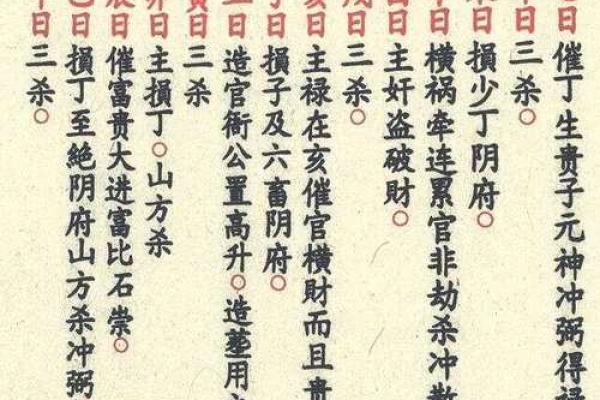 日催丁生贵子元神冲弼得禄
日三杀○
日損少丁阴府○
日横祸牵连累官非劫杀冲
酉日主奸盗破財○
日三杀○
亥日主禄在亥催官横財而且贵
日損子及六畜阴府○
日造官衙公置高升○造墓用
寅日三杀
卯日主損丁○山方杀
辰日催富贵大进富比石崇○
巳日損丁至絶阴府山方杀冲弼
日三杀○